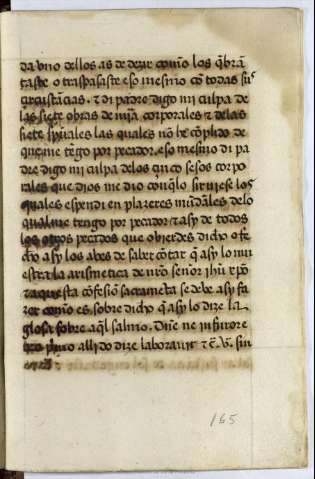 da vno dellos as de dezir com̃o los q̃brã
taste o traspasaste eso mesmo cõ todas su᷉s
çircustãcias. ⁊ di padre digo mi culpa de
las siete obras de mĩa corporales ⁊ delas
siete sp̃uales las quales nõ he cõplido de
que me tẽgo por pecador. eso mesmo di pa
dre digo mi culpa delos çinco sesos corpo
rales que dios me dio con q̃lo siruiese los
quales espendi en plazeres mũdanales delo
qual me tengo por pecador ⁊ asy de todos
los otros pecados que ouierdes dicho o fe
cho asy los abes de saber cõtar q̃ asy lo mu
estra la arismetica de nr̃o señor ihũ xp̃o
⁊ aquesta cõfesiõ sacramẽta se debe asy fa
zer com̃o es sobre dicho q̃ asy lo dize la
glosa sobre aq̃l salmo. Dñe ne in furore
tuo primo alli do dize laborauit ⁊ c̃.
165